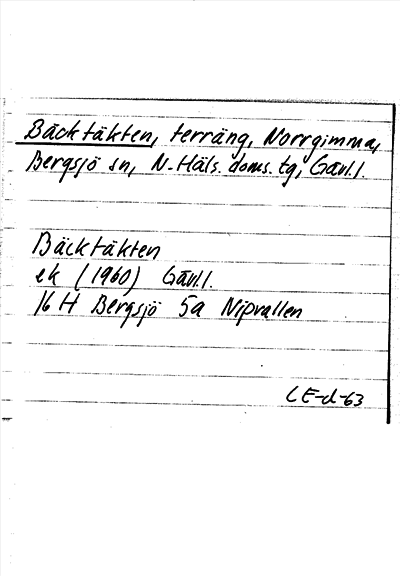 Bäcktäkten, terräng, Norrgimma,
Bergsjö sn, N. Häls. doms. tg, Gävl.l.
Bäcktäkten
ek (1960) Gävl.l.
16 H Bergsjö 5a Nipvallen
CE-d-63